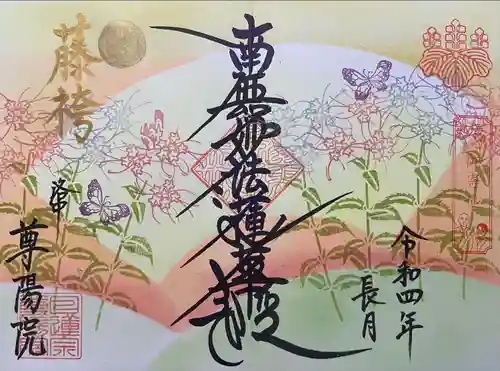 令和四年
長月
南無妙法蓮華経
藤袴
洛中
尊陽院
日蓮宗